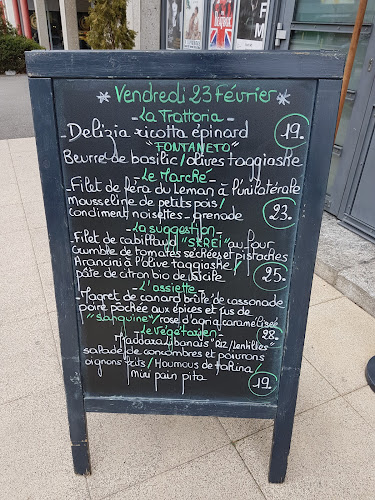 * Vendredi 23 Février *
-La Trattoria-
-Delizia ricotta épinard
"FONTANETO"
Beurre de basilic/olives taggiasche
19.-
-Le Marché-
-Filet de féra du Léman à l'unilatérale
mousseline de petits pois/
Condiment noisettes-grenade
23.-
-La suggestion-
-Filet de cabillaud "SKREI" au four
Crumble de tomates séchées et pistaches
Arancini à l'olive taggiasche/
pâte de citron bio de Sicile
25.-
-L'assiette-
-Magret de canard brûlé de cassonade
poire pochée aux épices et jus de
"sanguine"/rose d'agria caramélisée
28.-
-Le végétarien-
-M'jaddara Libanais "Riz/Lentilles"
salade de concombres et poivrons
oignons frits/Houmous de tahina/
mini pain pita
19.-